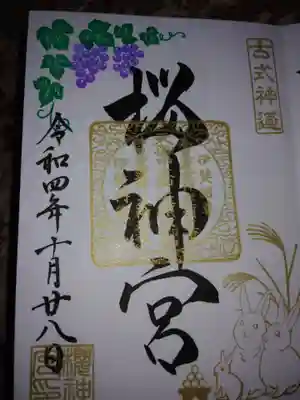 古式神道
桜神宮
令和四年十月廿八日